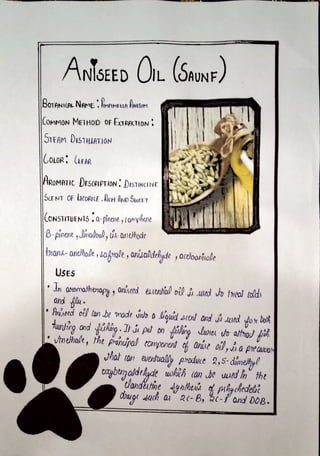 ANISEED OIL (SAUNF)
BOTANICAL NAME : PIMPINELLA ANISUM
COMMON METHOD OF EXTRACTION :
STEAM DISTILLATION
COLOR : CLEAR
AROMATIC DESCRIPTION : DISTINCTIVE
SCENT OF LICORICE . RICH AND SWEET
CONSTITUENTS : α-pinene , camphene
B-pinene , linalool , cis anethole
trans-anethole , safrole , anisaldehyde , acetoanisole
USES
• In aromatherapy , aniseed essential oil is used to treat colds
and flu.
• Aniseed oil can be made into a liquid scent and is used for both
hunting and fishing. It is put on fishing lures to attract fish.
• Anethole, the principal component of anise oil, is a precursor
that can eventually produce 2,5-dimethyl
oxybenzaldehyde which can be used in the
clandestine synthesis of psychedelic
drugs such as 2C-B, 2C-I and DOB.